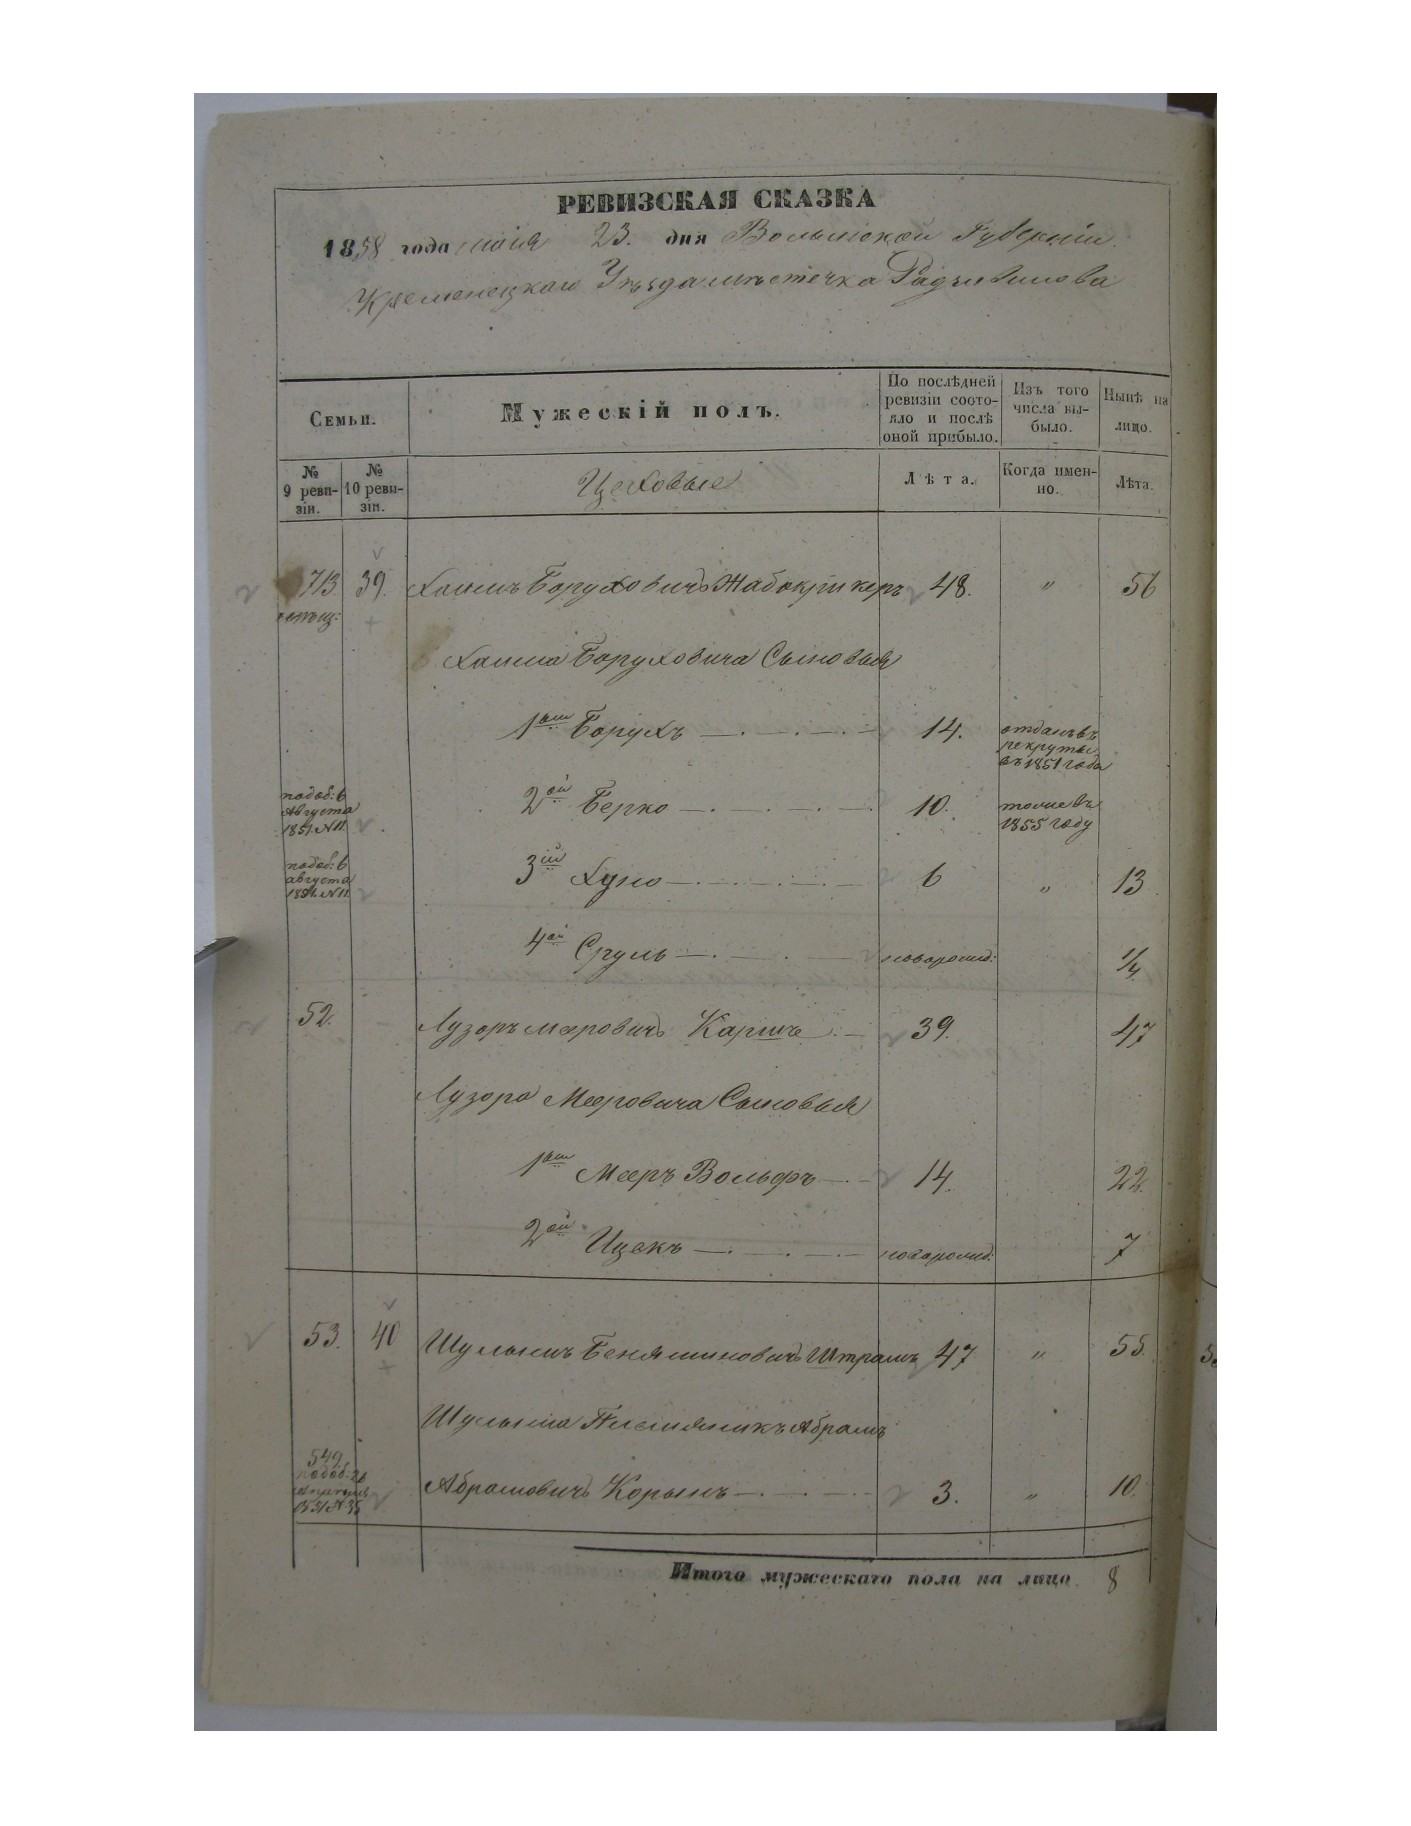 РЕВИЗСКАЯ СКАЗКА
1858 года маія 23. дня Волынской Губерніи
Кременецкаго Уѣзда мѣстечка Радзивилова
Семьи.
Мужескій полъ.
По послѣдней ревизіи состояло и послѣ оной прибыло.
Изъ того числа выбыло.
Нынѣ на лицо.
№ 9 ревизіи.
№ 10 ревизіи.
Цеховые
Лѣта.
Когда именно.
Лѣта.
713 39. Хаимъ Боруховичъ Жабокрикеръ 48. " 56
Хаима Боруховича Сыновья
1ый Борухъ 14. отданъ въ рекруты въ 1851 года
подоб: 6 Августа 1851 N 11. 2ой Берко 10. тоже въ 1855 году
подоб: 6 августа 1851. N 11 3ій Хуно 6 " 13
4ой Сруль новорожд: 1/4
52. Лузоръ Меровичъ Карше 39. 47
Лузора Мееровича Сыновья
1ый Мееръ Вольфъ 14. 22.
2ой Ицекъ новорожд: 7
53. 40 Шулимъ Беняминовичъ Штрамъ 47 " 55.
Шулима Племянникъ Абрамъ
549 подоб: 26 1851 N 35 Абрамовичъ Корынъ 3. " 10.
Итого мужескаго пола на лицо 8